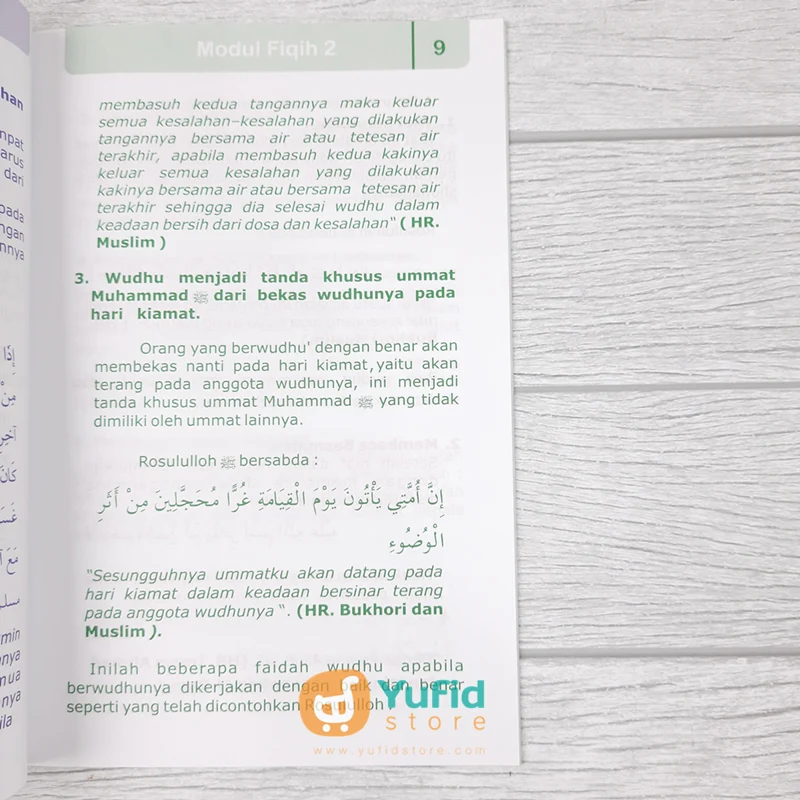 han
npat
arus
dari
pada
ngan
nnya
إِذَا
مِنْ
كَانَ
مَعَ
مسلم
min
nya
mua
nya
ila
Modul Fiqih 2
9
membasuh kedua tangannya maka keluar
semua kesalahan–kesalahan yang dilakukan
tangannya bersama air atau tetesan air
terakhir, apabila membasuh kedua kakinya
keluar semua kesalahan yang dilakukan
kakinya bersama air atau bersama tetesan air
terakhir sehingga dia selesai wudhu dalam
keadaan bersih dari dosa dan kesalahan" ( HR.
Muslim )
3. Wudhu menjadi tanda khusus ummat
Muhammad ﷺ dari bekas wudhunya pada
hari kiamat.
Orang yang berwudhu' dengan benar akan
membekas nanti pada hari kiamat,yaitu akan
terang pada anggota wudhunya, ini menjadi
tanda khusus ummat Muhammad ﷺ yang tidak
dimiliki oleh ummat lainnya.
Rosululloh ﷺ bersabda :
إِنَّ أُمَّتِي يَأْتُونَ يَوْمَ الْقِيَامَةِ غُرًّا مُحَجَّلِينَ مِنْ أَثَرِ
الْوُضُوءِ
"Sesungguhnya ummatku akan datang pada
hari kiamat dalam keadaan bersinar terang
pada anggota wudhunya ". (HR. Bukhori dan
Muslim ).
Inilah beberapa faidah wudhu apabila
berwudhunya dikerjakan dengan baik dan benar
seperti yang telah dicontohkan Rosululloh
Yufid
store
www.yufidstore.com